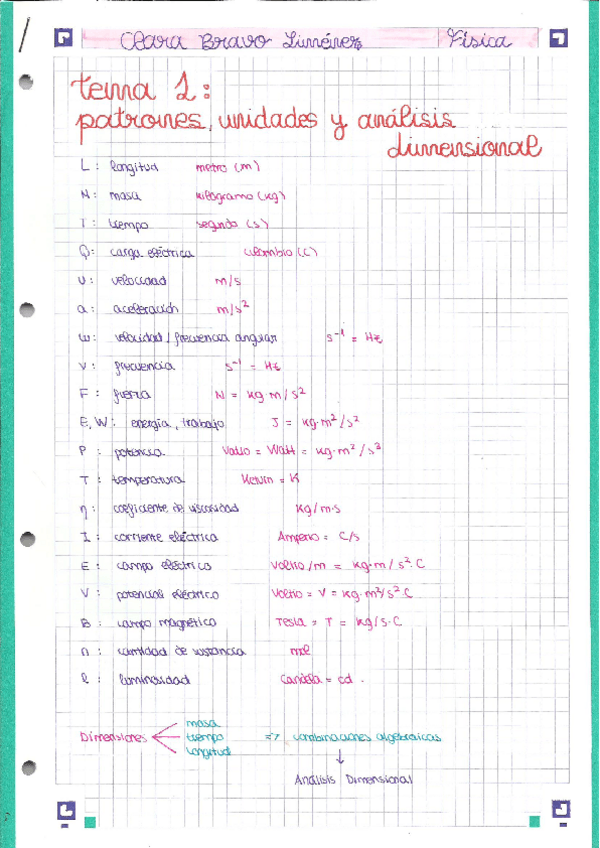 Clara Bravo Liménez Física
tema 1:
patrones, unidades y análisis
dimensional
L: longitud metro (m)
M: masa kilogramo (kg)
T: tiempo segundo (s)
Q: carga eléctrica culombio (C)
v: velocidad m/s
a: aceleración m/s²
w: velocidad / frecuencia angular s⁻¹ = Hz
ν: frecuencia s⁻¹ = Hz
F: fuerza N = kg·m/s²
E, W: energía, trabajo J = kg·m²/s²
P: potencia Vatio = Watt = kg·m²/s³
T: temperatura Kelvin = K
η: coeficiente de viscosidad kg/m·s
I: corriente eléctrica Amperio = C/s
E: campo eléctrico Voltio/m = kg·m/s²·C
V: potencial eléctrico Voltio = V = kg·m²/s²·C
B: campo magnético Tesla = T = kg/s·C
n: cantidad de sustancia mol
l: luminosidad Candela = cd.
masa
Dimensiones tiempo => combinaciones algebraicas
longitud
Análisis Dimensional